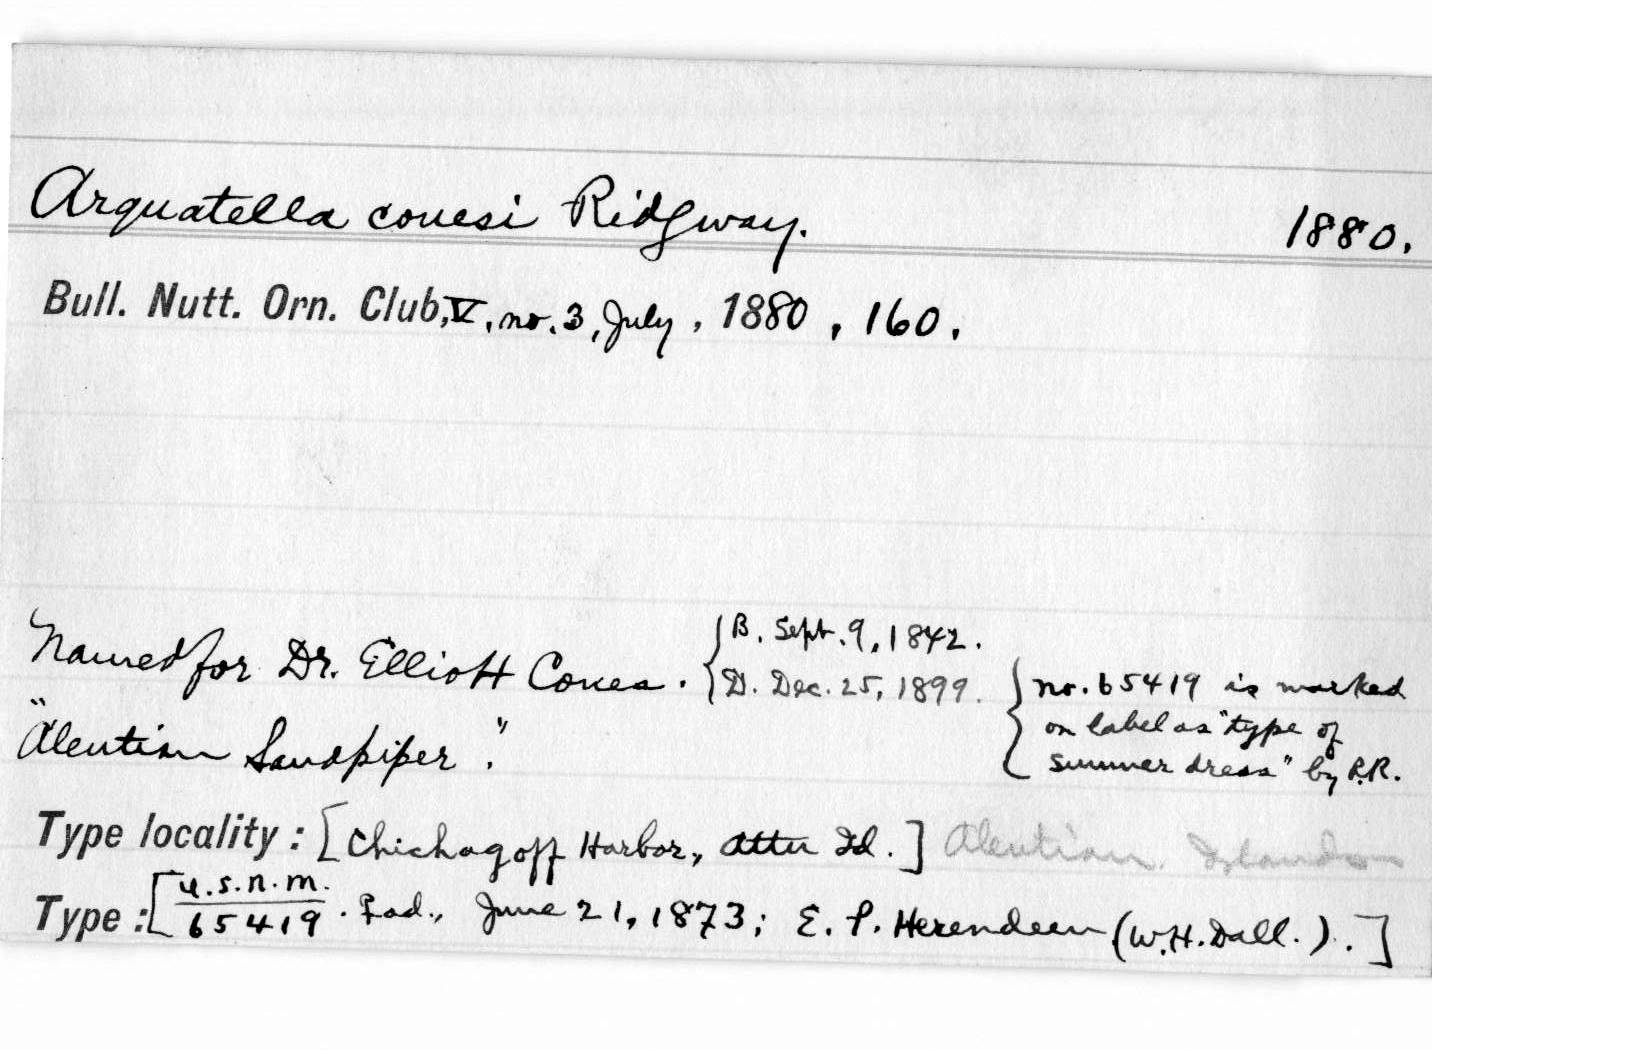 Arquatella couesi Ridgway. 1880.
Bull. Nutt. Orn. Club, V, no. 3, July, 1880, 160.
Named for Dr. Elliott Coues. { B. Sept. 9, 1842.
D. Dec. 25, 1899.
{ no. 65419 is marked
on label as "type of
summer dress" by R.R.
"Aleutian Sandpiper."
Type locality: [Chichagoff Harbor, Attu Id.] Aleutian Islands
Type: [U.S.N.M.
65419. ad., June 21, 1873; E. P. Herendeen (W.H. Dall.).]